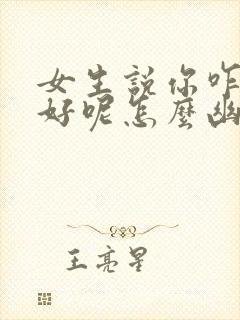 女生說你咋
好呢怎麼幽
王亮星